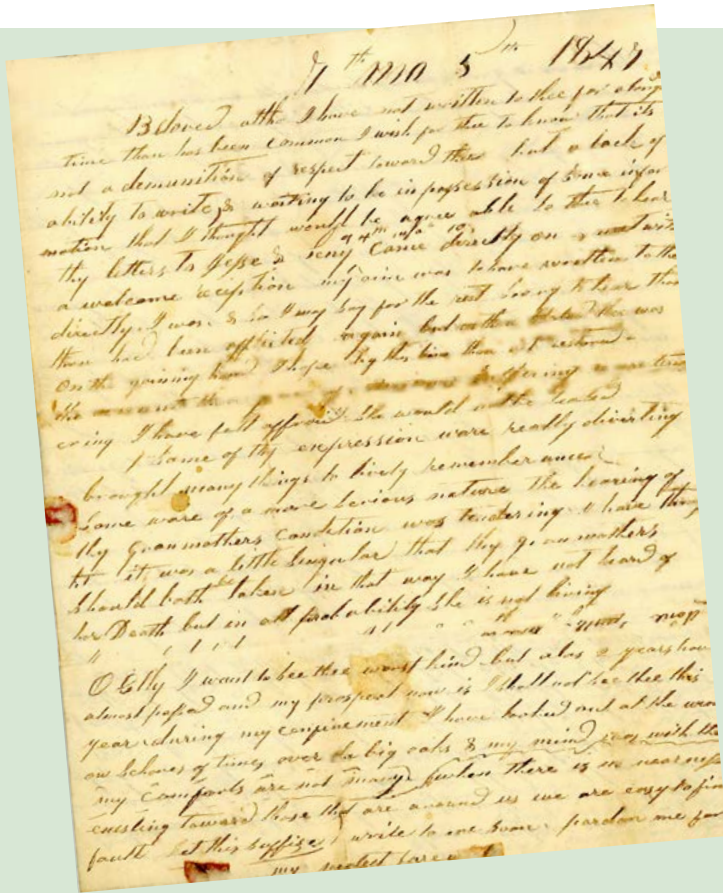 7th mo 5th 1847
Beloved altho I have not written to thee for a longer
time than has been common I wish for thee to know that its
not a demunition of respect toward thee but a lack of
ability to write & wanting to be in possession of some infor
mation that I thought would be agree able to thee to hear
thy letters to Jesse & of 4th mo 10 came directly on & met with
a welcome reception my aim was to have written to thee
directly I was & so I may say for the rest sorry to hear that
thou had been afflicted again but thee was
on the gaining hand I hope by this time thou art restored
the
I have felt affraid she would not be
Some of thy expression ware really diverting
brought many things to lively remembrance
Some ware of a more serious nature the hearing of
thy granmothers condition was tendering I have thought
it was a little singular that thy granmothers
should both be taken in that way I have not heard of
her Death but in all probability she is not living
O Elly I want to see thee worst kind but alas 2 years have
almost passed and my prospect now is I shall not see thee this
year during my confinement I have looked out at the wind
ow Schores of times over the big oaks & my mind was with thee
my comforts are not many (when there is no nearness
existing toward those that are around us we are easy to find
fault let this suffise) write to me soon pardon me for
my neglect farewell